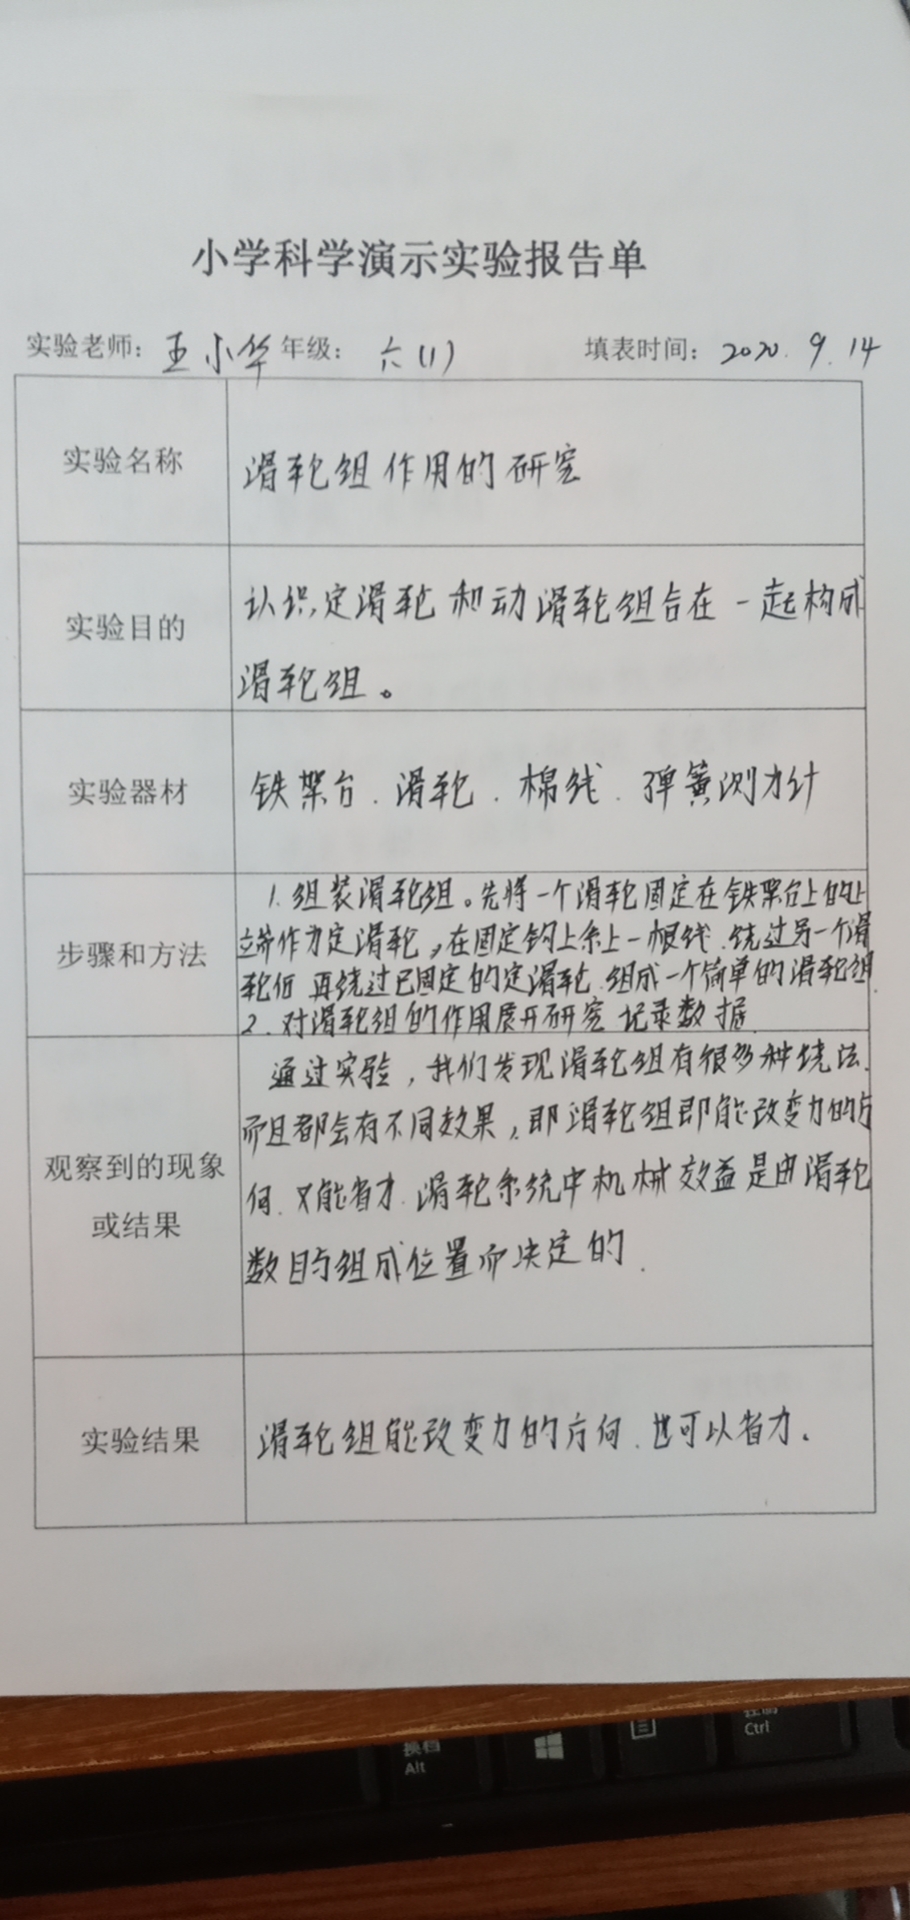 小学科学演示实验报告单
实验老师：王小华 年级：六(1) 填表时间：2020.9.14
实验名称
滑轮组作用的研究
实验目的
认识定滑轮和动滑轮组合在一起构成
滑轮组。
实验器材
铁架台.滑轮.棉线.弹簧测力计
步骤和方法
1.组装滑轮组。先将一个滑轮固定在铁架台上的上
端作为定滑轮,在固定钩上系上一根线.绕过另一个滑
轮后 再绕过已固定的定滑轮.组成一个简单的滑轮组.
2.对滑轮组的作用展开研究 记录数据.
观察到的现象
或结果
通过实验,我们发现滑轮组有很多种绕法.
而且都会有不同效果,即滑轮组即能改变力的方
向.又能省力.滑轮系统中机械效益是由滑轮
数目与组成位置而决定的.
实验结果
滑轮组能改变力的方向.也可以省力.
换档
Alt
Ctrl